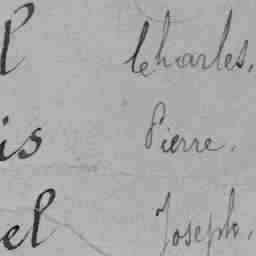 l Charles,
is Pierre.
el Joseph,